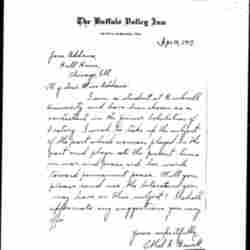 The Buffalo Valley Inn
Jane Addams,
Hull House,
Chicago, Ill.
My dear Miss Addams:
I am a student at Bucknell
University and have been chosen as a
contestant in the Junior Exhibition of
Oratory. I wish to take up the subject
of the part which woman played in the
past and plays at the present time
in war and peace and her work
toward permanent peace. Will you
please send me the literature you
may have on this subject? I shall
appreciate any suggestions you may
offer.
Yours respectfully,
Ethel